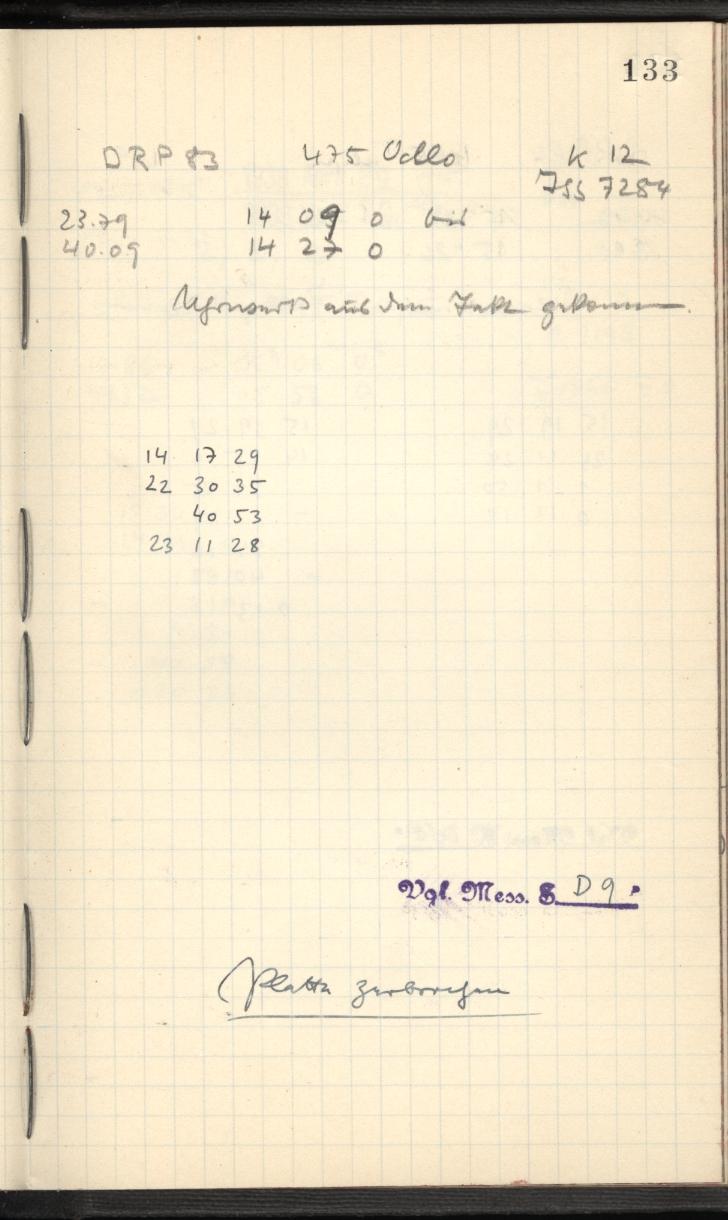 133
DRP 83 475 Ocllo K 12
Jss 7284
23.79 14 09 0 bis
40.09 14 27 0
Uhrwerk aus dem Takt gekommen.
14 17 29
22 30 35
40 53
23 11 28
Vgl. Mess. S. D 9.
Platte zerbrochen